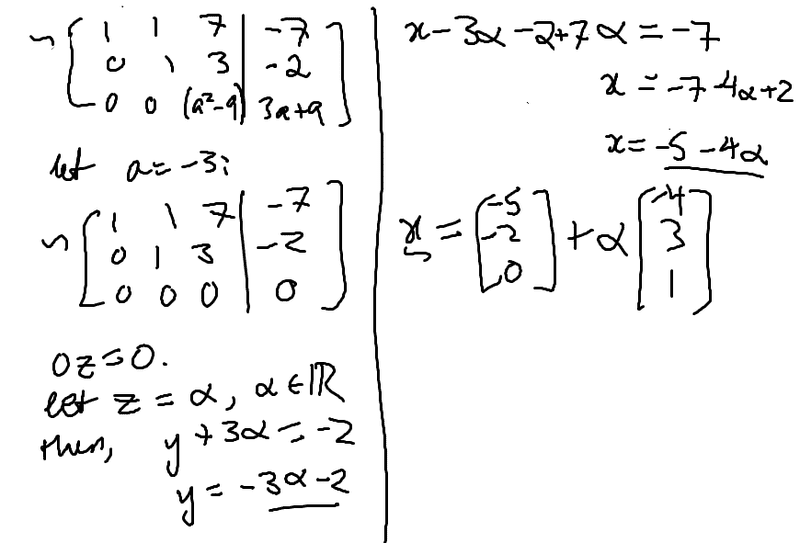 ~ [ 1 1 7 | -7 ]
[ 0 1 3 | -2 ]
[ 0 0 (a²-9) | 3a+9 ]
let a = -3:
~ [ 1 1 7 | -7 ]
[ 0 1 3 | -2 ]
[ 0 0 0 | 0 ]
0z = 0.
let z = α, α ∈ ℝ
then, y + 3α = -2
y = -3α - 2
x - 3α - 2 + 7α = -7
x = -7 - 4α + 2
x = -5 - 4α
x = [ -5 ] + α [ -4 ]
[ -2 ] [ 3 ]
[ 0 ] [ 1 ]